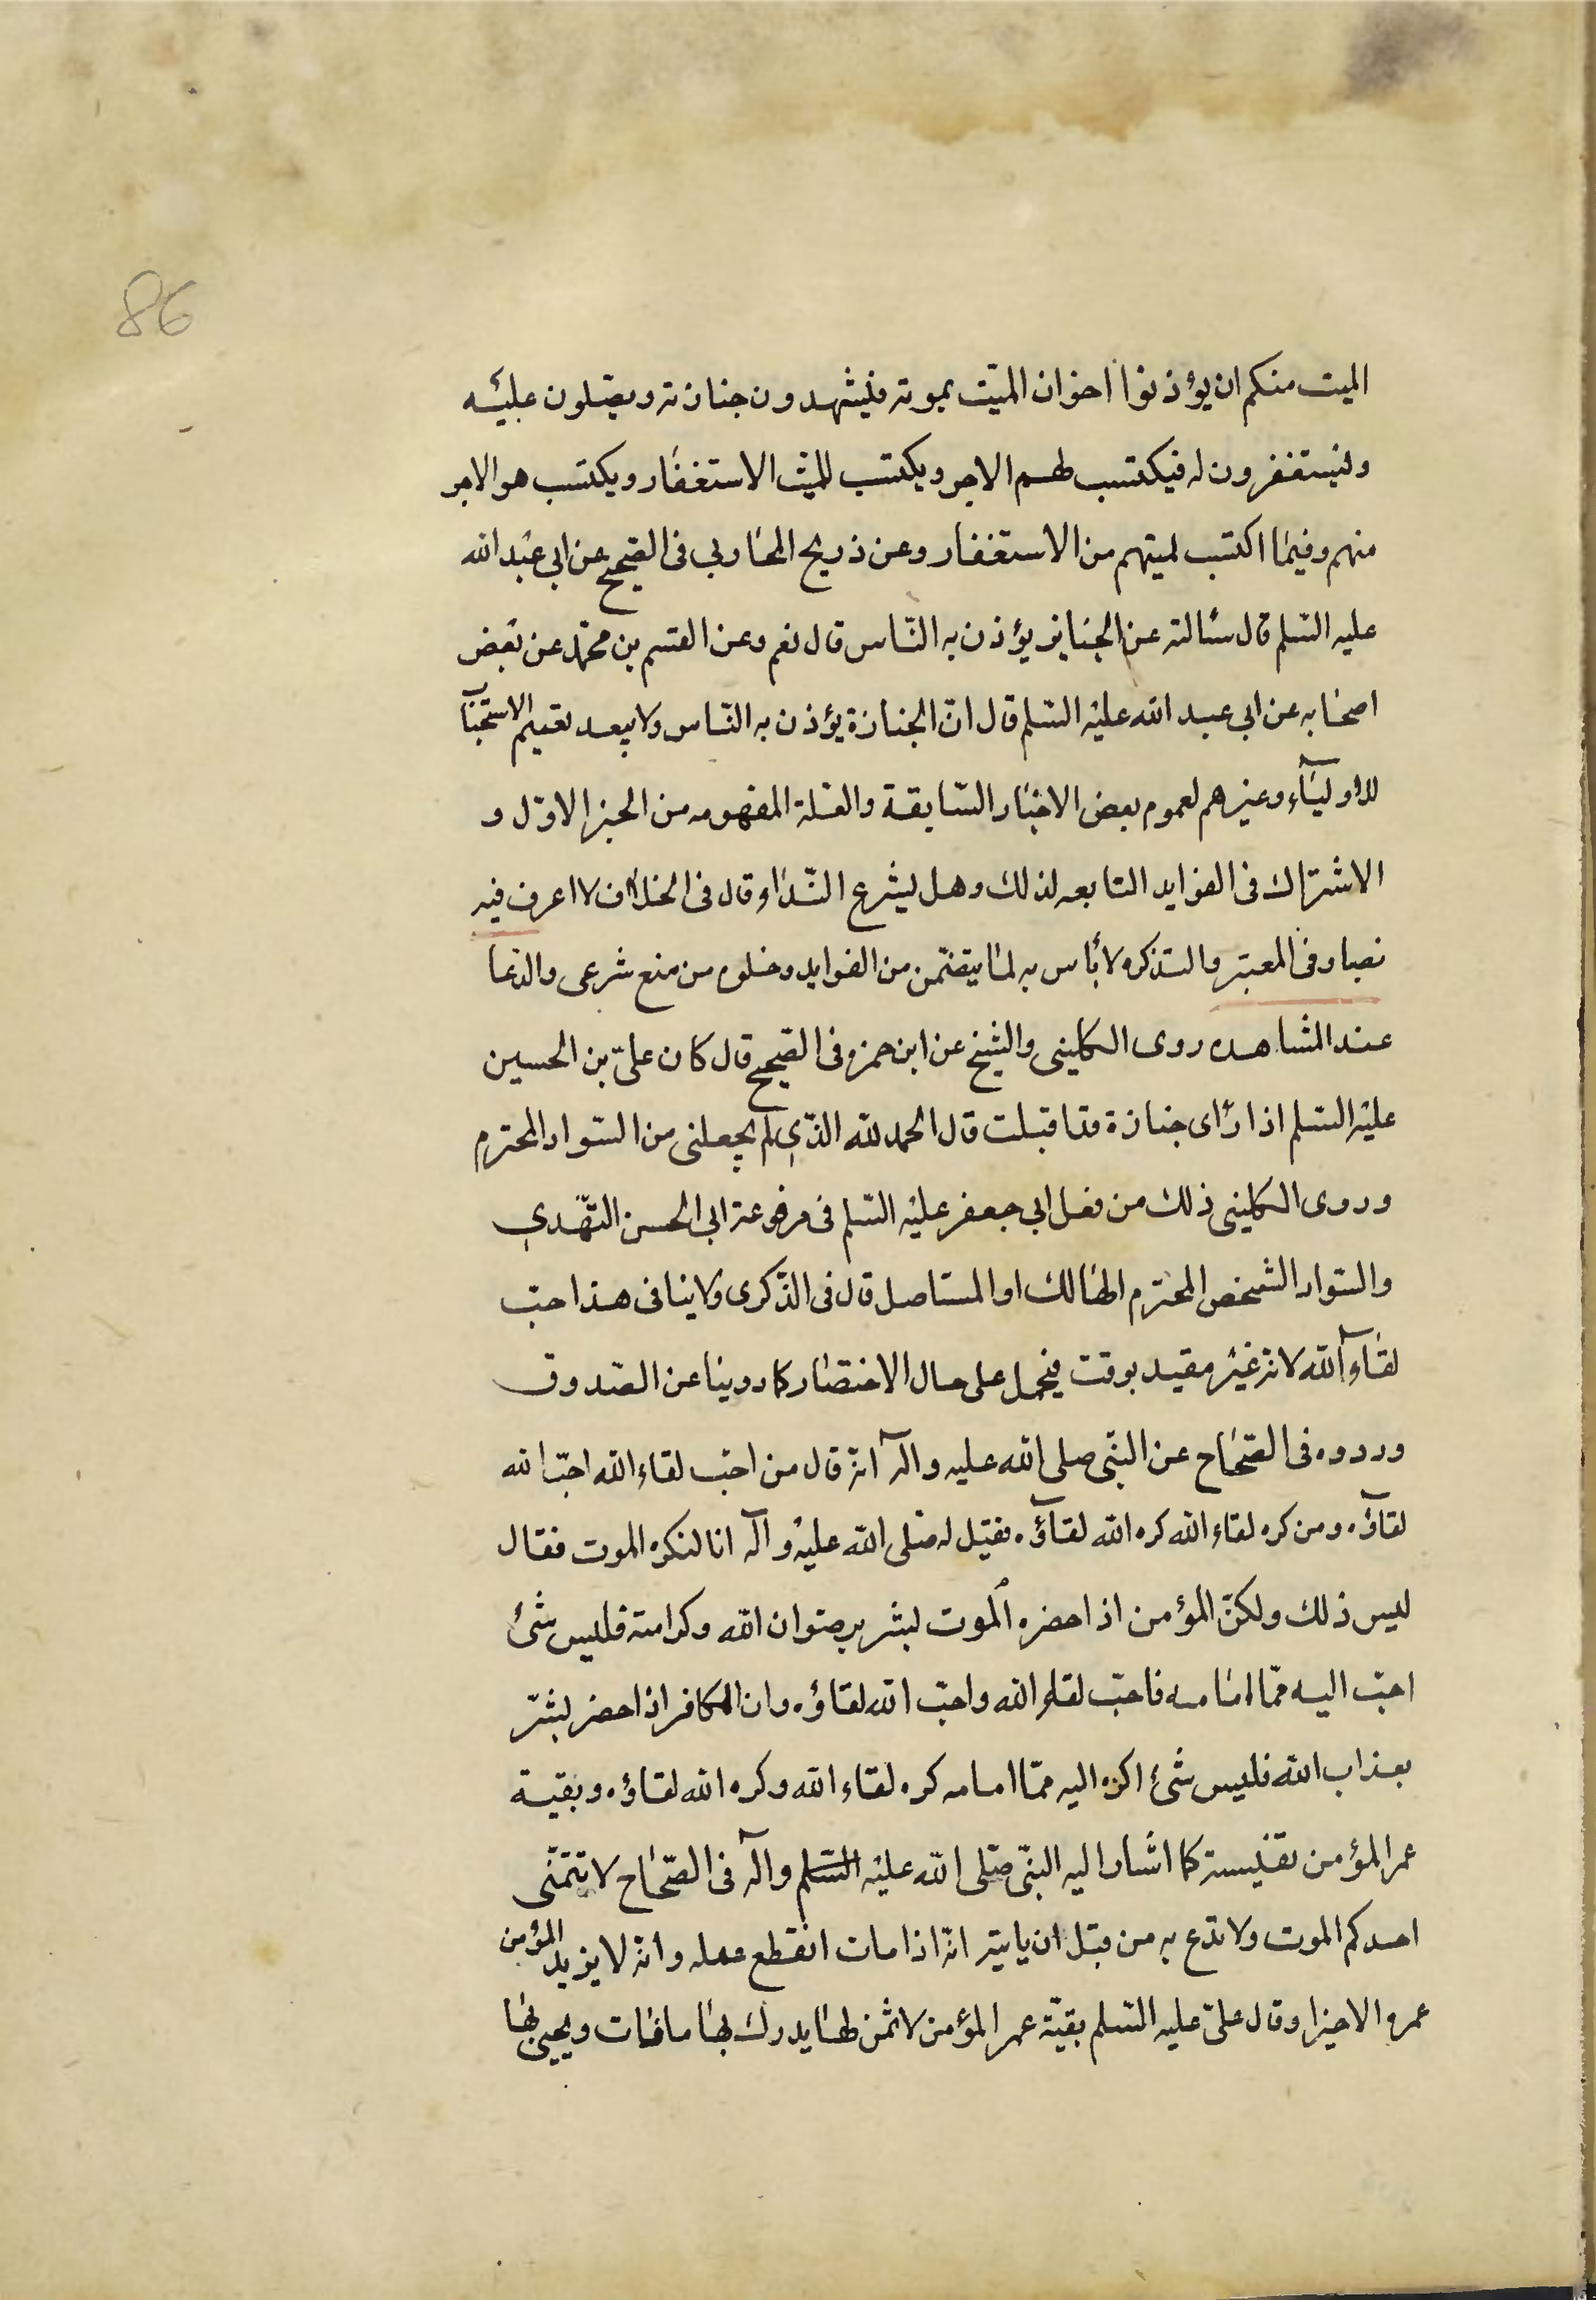 86
الميت منكم ان يؤذنوا اخوان الميّت بموته فيشهدون جنازته ويصلّون عليه
وليستغفرون له فيكتسب لهم الاجر ويكتسب للميّت الاستغفار ويكتسب هو الاجر
منهم وفيما اكتسب لميتهم من الاستغفار وعن ذريح المحاربي فى الصّحيح عن ابى عبد الله
عليه السّلم قال سئالته عن الجنايز يؤذن به النّاس قال نعم وعن القسم بن محمّد عن بعض
اصحابه عن ابى عبد الله عليه السّلم قال انّ الجنازة يؤذن به النّاس ولا يبعد تعميم الاستحباب
للاوليآء وغيرهم لعموم بعض الاخبار السّابقة والعلّة المفهومه من الخبر الاوّل و
الاشتراك فى الفوايد التابعه لذلك وهل يشرع النّداء وقال فى الخلاف لا اعرف فيه
نصا وفى المعتبر والتذكره لا بأس به لما يتضمّن من الفوايد وخلوه من منع شرعى والدعا
عند المشاهده روى الكلينى والشيخ عن ابن حمزه فى الصّحيح قال كان علىّ بن الحسين
عليه السّلم اذا رأى جنازة قد اقبلت قال الحمد لله الذّي لم يجعلنى من السّواد المخترم
وروى الكلينى ذلك من فعل ابى جعفر عليه السّلم فى مرفوعة ابى الحسن النّهدي
والسّواد الشخص المخترم الهالك او المستاصل قال فى الذّكرى ولا ينافى هذا حبّ
لقآء الله لانه غير مقيد بوقت فيحمل على حال الاختضار كما روينا عن الصّدوق
ورووه فى الصّحاح عن النّبى صلى الله عليه وآله انه قال من احبّ لقاء الله احبّ الله
لقآؤه ومن كره لقاء الله كره الله لقآؤه فقيل له صلّى الله عليه وآله انا لنكره الموت فقال
ليس ذلك ولكنّ المؤمن اذا حضره الموت بشر برضوان الله وكرامته فليس شئ
احبّ اليه ممّا امامه فاحبّ لقاء الله واحبّ الله لقاؤه وان الكافر اذا حضر بشّر
بعذاب الله فليس شئ اكره اليه ممّا امامه كره لقاء الله وكره الله لقاؤه وبقية
عمر المؤمن نفيسة كما اشار اليه النبّى صلّى الله عليه السّلم وآله فى الصّحاح لا يتمنّى
احدكم الموت ولا يدع به من قبل ان ياتيه انّه اذا مات انقطع عمله وانه لا يزيد المؤمن
عمره الا خيرا وقال علىّ عليه السّلم بقيّة عمر المؤمن لا ثمن لها يدرك بها ما فات ويحيى بها